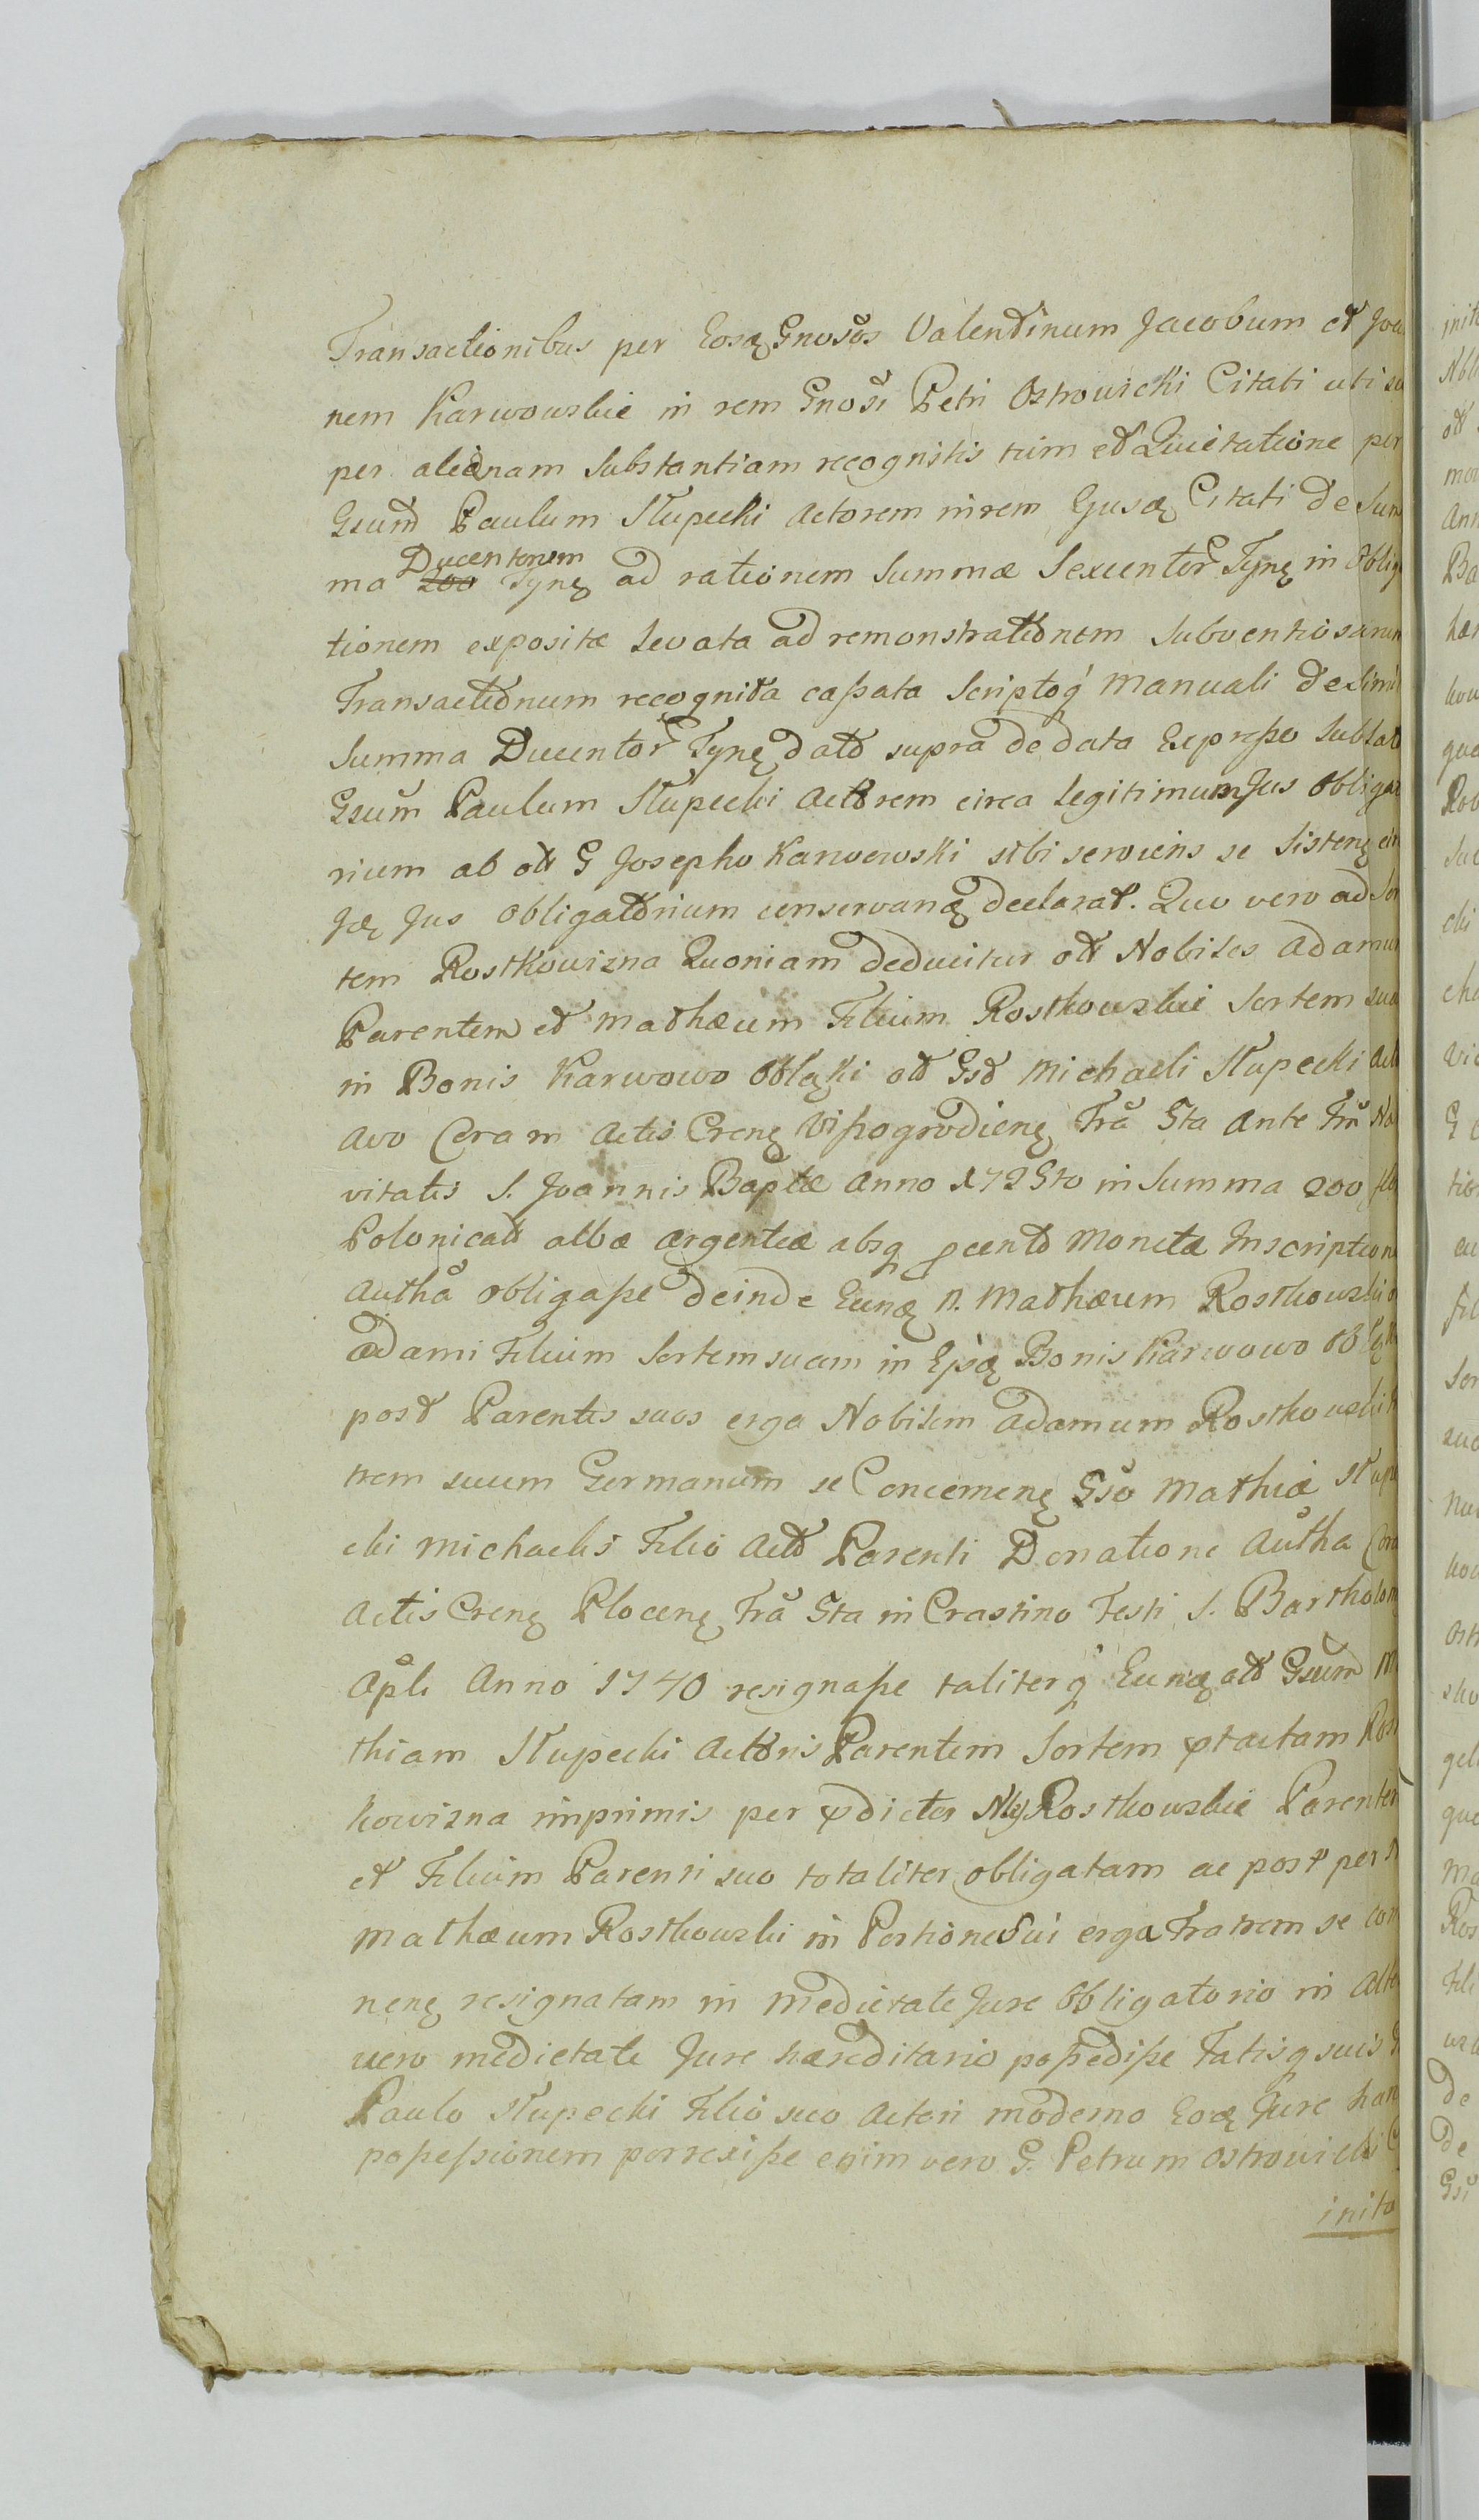 Transactionibus per Eosq Gnosos Valentinum Jacobum et Joa
nem Karwowskie in rem Gnosi Petri Ostrowicki Citati uti su
per alienam Substantiam recognitis tum et Quietatione per
Gsum Paulum Słupecki Actorem in rem Ejusq Citati de Sum
ma Ducentorum 200 Tynf ad rationem Summæ Sexcentor Tynf in Oblig
tionem expositæ levata ad remonstrationem Subventiosarum
Transactionum recognita cassata Scriptoq Manuali de simil
Summa Ducentor Tynf dato supra de data Expresso Sublato
Gsum Paulum Słupecki Actorem circa legitimum Jus Obligat
rium ab olt G Josepho Karwowski sibi serviens se Sisten cir
Jd Jus Obligatorium conservand declarat. Quo vero ad Sor
tem Rostkowizna Quoniam deducitur olt Nobiles Adamum
Parentem et Mathæum Filium Rostkowskie Sortem sua
in Bonis Karwowo Obłęki olt Gso Michaeli Słupecki Act
Avo Coram Actis Cren Wyssogrodien Fra 5ta Ante Frm No
vitatis S. Joannis Baptæ Anno 1725to in Summa 200 fl
Polonicalt albæ argenteæ absq pcento Monetæ Inscriptione
Autha obligasse deinde Eund N. Mathæum Rostkowski o
Adami Filium Sortem suam in Ejsd Bonis Karwowo Obłęk
post Parentes suos erga Nobilem Adamum Rostkowski
trem suum Germanum se Concernen Gso Mathiæ Słupe
cki Michaelis Filio Acto Parenti Donatione Autha Cora
Actis Cren Plocen Fra 5ta in Crastino Festi S. Bartholom
Apli Anno 1740 resignasse taliterq Eund olt Gsum M
thiam Słupecki Actoris Parentem Sortem ptactam Rost
kowizna imprimis per pdictos Nles Rostkowskie Parentem
et Filium Parenti suo totaliter obligatam ac post per N
Mathæum Rostkowski in Portione sui erga Fratrem se con
nen resignatam in Medietate Jure Obligatorio in Alte
vero medietate Jure hæreditario possedisse Fatisq suis
Paulo Słupecki Filio suo Actori moderno Eod Jure han
possessionem porrexisse enim vero G. Petrum Ostrowicki C
inito